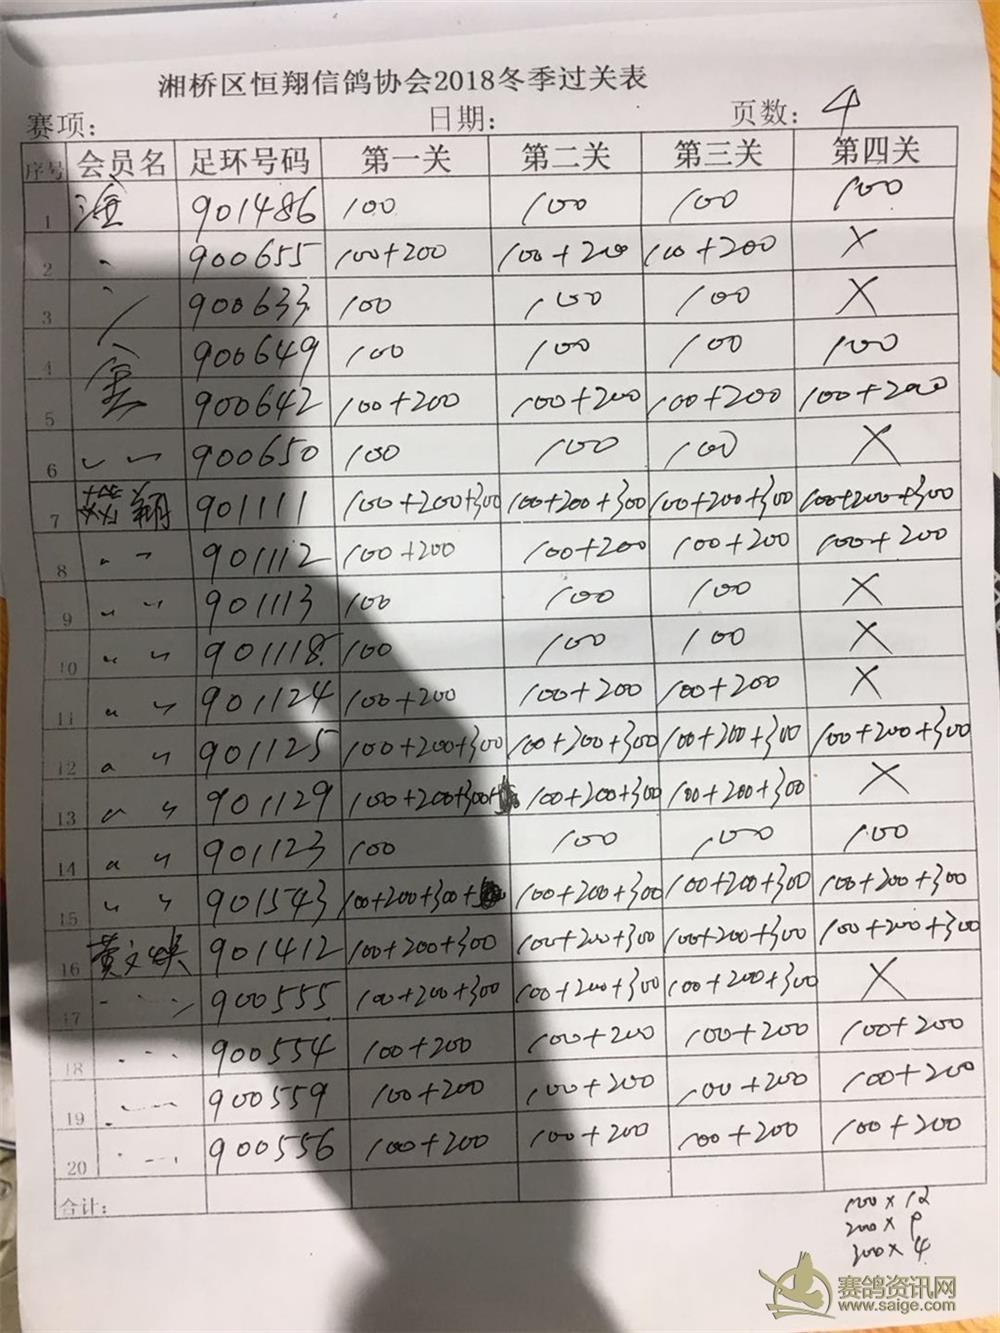 湘桥区恒翔信鸽协会2018冬季过关表
赛项: 日期: 页数: 4
序号 会员名 足环号码 第一关 第二关 第三关 第四关
1 901486 100 100 100 100
2 900655 100+200 100+200 100+200 X
3 900633 100 100 100 X
4 900649 100 100 100 100
5 900642 100+200 100+200 100+200 100+200
6 〃 〃 900650 100 100 100 X
7 翔 901111 100+200+300 100+200+300 100+200+300 100+200+300
8 〃 〃 901112 100+200 100+200 100+200 100+200
9 〃 〃 901113 100 100 100 X
10 〃 〃 901118 100 100 100 X
11 〃 〃 901124 100+200 100+200 100+200 X
12 〃 〃 901125 100+200+300 100+200+300 100+200+300 100+200+300
13 〃 〃 901129 100+200+300+ 100+200+300 100+200+300 X
14 〃 〃 901123 100 100 100 100
15 〃 〃 901543 100+200+300+ 100+200+300 100+200+300 100+200+300
16 黄文 901412 100+200+300 100+200+300 100+200+300 100+200+300
17 900555 100+200+300 100+200+300 100+200+300 X
18 900554 100+200 100+200 100+200 100+200
19 900559 100+200 100+200 100+200 100+200
20 900556 100+200 100+200 100+200 100+200
合计:
100×12
200×9
300×4
赛鸽资讯网
www.saige.com